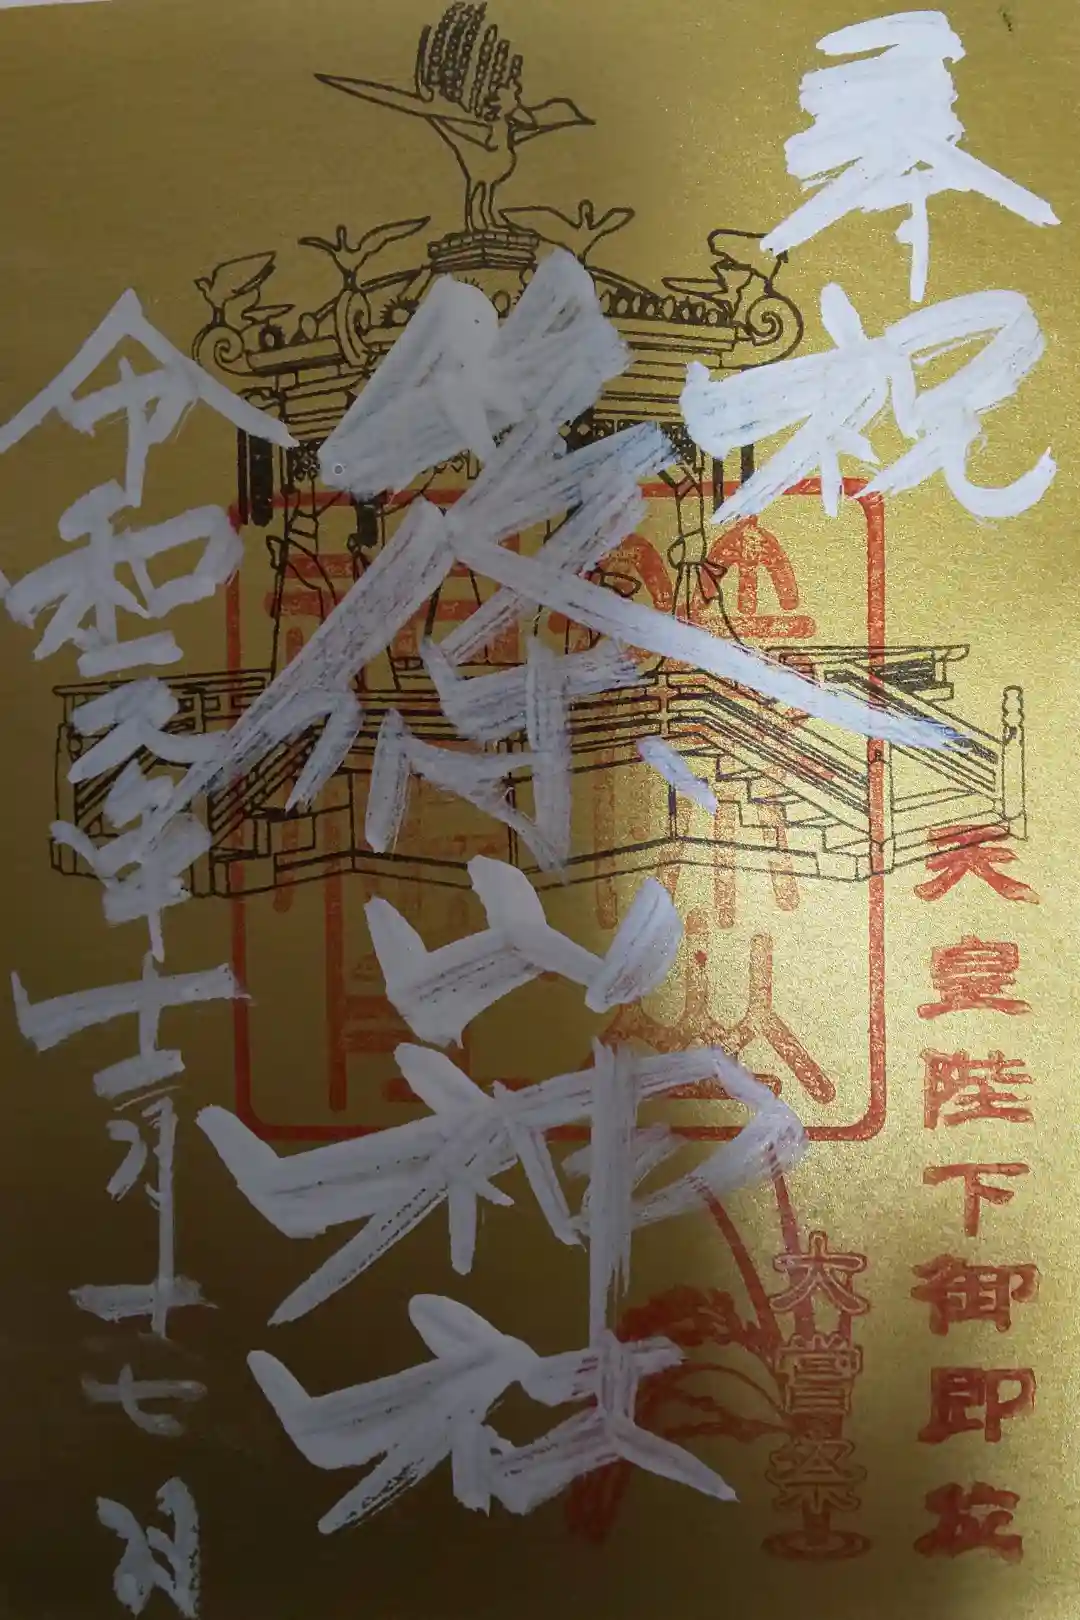 奉祝
天皇陛下御即位
大嘗祭
神社
令和元年十二月十七日